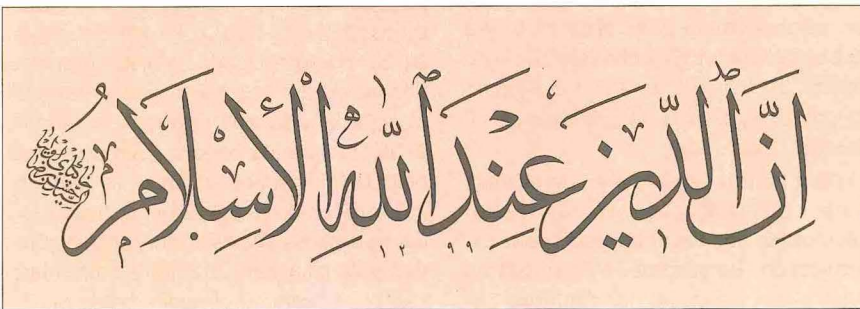 اِنَّ ٱلدِّينَ عِنْدَ ٱللّٰهِ الْأِسْلَامُ
١٢٩٩